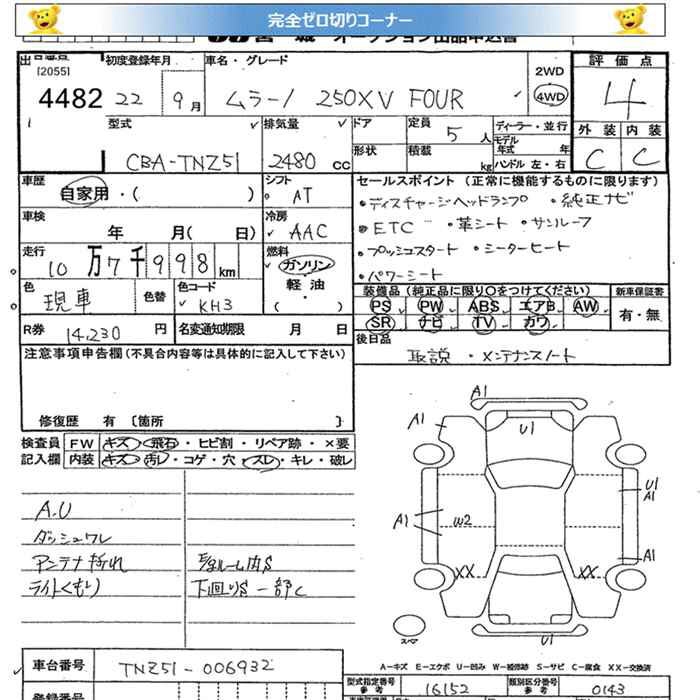 完全ゼロ切りコーナー
[2055]
初度登録年月
車名・グレード
2WD
評価点
4482
22
9月
ムラーノ 250XV FOUR
4WD
4
外装
内装
型式
排気量
ドア
定員
5人
ディーラー・並行
モデル年式
年
C
C
CBA-TNZ51
2480cc
形状
積載
kg
ハンドル 左・右
車歴
自家用・(
)
シフト
AT
セールスポイント (正常に機能するものに限ります)
・ディスチャージヘッドランプ ・純正ナビ
車検
年
月(
日)
冷房
AAC
・ETC ・革シート ・サンルーフ
・プッシュスタート ・シーターヒート
走行
10万7千998km
燃料
ガソリン
軽油
・(
)
・パワーシート
色
現車
色替
色コード
KH3
装備品 (純正品に限り○をつけてください)
新車保証書
PS PW ABS エアB AW
SR ナビ TV カワ
有・無
R券
14,230円
名変通知期限
月
日
後日品
取説・メンテナンスノート
注意事項申告欄(不具合内容等は具体的に記入して下さい)
修復歴 有 〔箇所
〕
検査員
記入欄
FW
キズ・飛石・ヒビ割・リペア跡・×要
内装
キズ・汚レ・コゲ・穴・スレ・キレ・破レ
A.U
ダッシュワレ
アンテナ折れ
ライトくもり
下回りS 一部C
A1
A1
U1
A1
W2
U1
A1
A1
XX
XX
U1
スペア
A-キズ E-エクボ U-凹み W-補修跡 S-サビ C-腐食 XX-交換済
車台番号
TNZ51-006932
型式指定番号
参考
16152
類別区分番号
参考
0143
登録番号